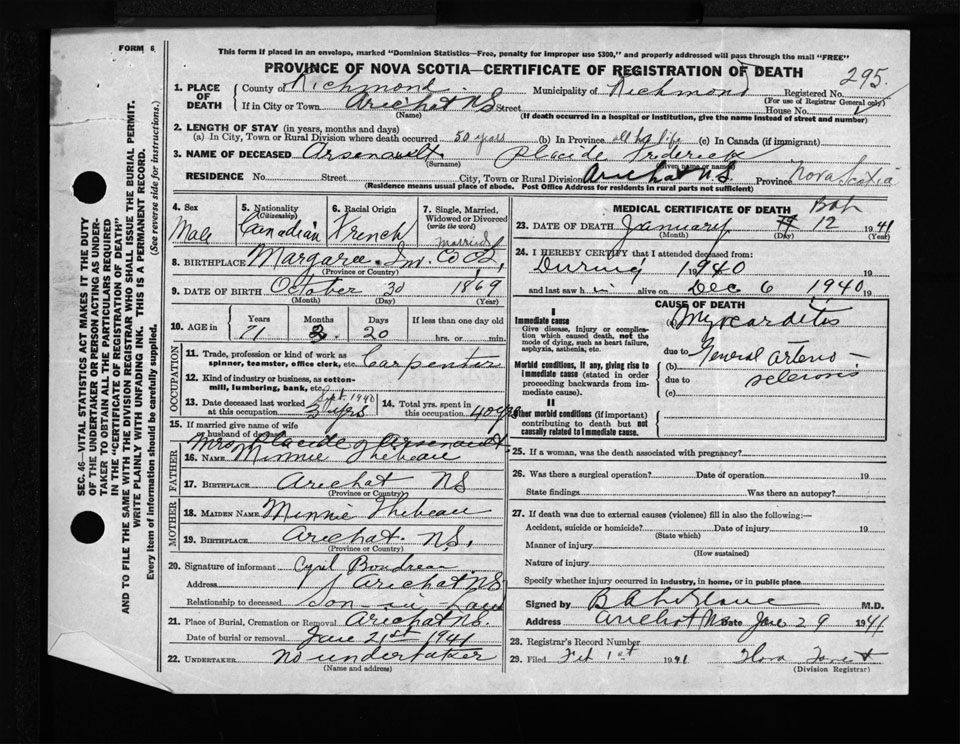 FORM 6
This form if placed in an envelope, marked "Dominion Statistics—Free, penalty for improper use $300," and properly addressed will pass through the mail "FREE"
PROVINCE OF NOVA SCOTIA—CERTIFICATE OF REGISTRATION OF DEATH
295
1. PLACE OF DEATH County of Richmond Municipality of Richmond Registered No.
(For use of Registrar General only)
If in City or Town Arichat NS Street House No.
(Name) (If death occurred in a hospital or institution, give its name instead of street and number)
2. LENGTH OF STAY (in years, months and days)
(a) In City, Town or Rural Division where death occurred 50 years (b) In Province all his life (c) In Canada (if immigrant)
3. NAME OF DECEASED Arsenault Placide Frederick
(Surname) (Given name or names)
RESIDENCE No. Street City, Town or Rural Division Arichat N.S. Province Nova Scotia
(Residence means usual place of abode. Post Office Address for residents in rural parts not sufficient)
4. Sex Male
5. Nationality (Citizenship) Canadian
6. Racial Origin French
7. Single, Married, Widowed or Divorced (write the word) married
8. BIRTHPLACE Margaree Inv. Co
(Province or Country)
9. DATE OF BIRTH October 30 1869
(Month) (Day) (Year)
10. AGE in Years Months Days If less than one day old
71 2 20 hrs. or min.
OCCUPATION
11. Trade, profession or kind of work as spinner, teamster, office clerk, etc. Carpenter
12. Kind of industry or business, as cotton-mill, lumbering, bank, etc.
13. Date deceased last worked at this occupation Sept. 1940 3 yrs 14. Total yrs. spent in this occupation 40 yrs
15. If married give name of wife or husband of deceased
Mrs Placide Arsenault
FATHER
16. NAME Minnie Thebeau
17. BIRTHPLACE Arichat NS
(Province or Country)
MOTHER
18. MAIDEN NAME Minnie Thebeau
19. BIRTHPLACE Arichat. NS.
(Province or Country)
20. Signature of informant Cyril Boudreau
Address Arichat NS
Relationship to deceased Son-in-law
21. Place of Burial, Cremation or Removal Arichat NS.
Date of burial or removal Jane 21st 1941
22. UNDERTAKER no undertaker
(Name and address)
MEDICAL CERTIFICATE OF DEATH
23. DATE OF DEATH January 12 1941
(Month) (Day) (Year)
24. I HEREBY CERTIFY that I attended deceased from:
During 1940 19
and last saw h im alive on Dec 6 1940 19
CAUSE OF DEATH
I
Immediate cause (a) Myocarditis
Give disease, injury or complication which caused death, not the mode of dying, such as heart failure, asphyxia, asthenia, etc.
due to General arterio-
Morbid conditions, if any, giving rise to immediate cause (stated in order proceeding backwards from immediate cause). (b)
due to sclerosis
(c)
II
Other morbid conditions (if important) contributing to death but not causally related to immediate cause.
25. If a woman, was the death associated with pregnancy?
26. Was there a surgical operation? Date of operation 19
State findings Was there an autopsy?
27. If death was due to external causes (violence) fill in also the following:—
Accident, suicide or homicide? Date of injury 19
(State which)
Manner of injury
(How sustained)
Nature of injury
Specify whether injury occurred in industry, in home, or in public place
Signed by M.D.
Address Arichat NS Date Jan 29 1941
28. Registrar's Record Number
29. Filed Feb 1st 1941
(Division Registrar)
SEC. 46—VITAL STATISTICS ACT MAKES IT THE DUTY
OF THE UNDERTAKER OR PERSON ACTING AS UNDER-
TAKER TO OBTAIN ALL THE PARTICULARS REQUIRED
IN THE "CERTIFICATE OF REGISTRATION OF DEATH"
AND TO FILE THE SAME WITH THE DIVISION REGISTRAR WHO SHALL ISSUE THE BURIAL PERMIT.
WRITE PLAINLY WITH UNFADING INK. THIS IS A PERMANENT RECORD.
Every item of information should be carefully supplied. (See reverse side for instructions.)